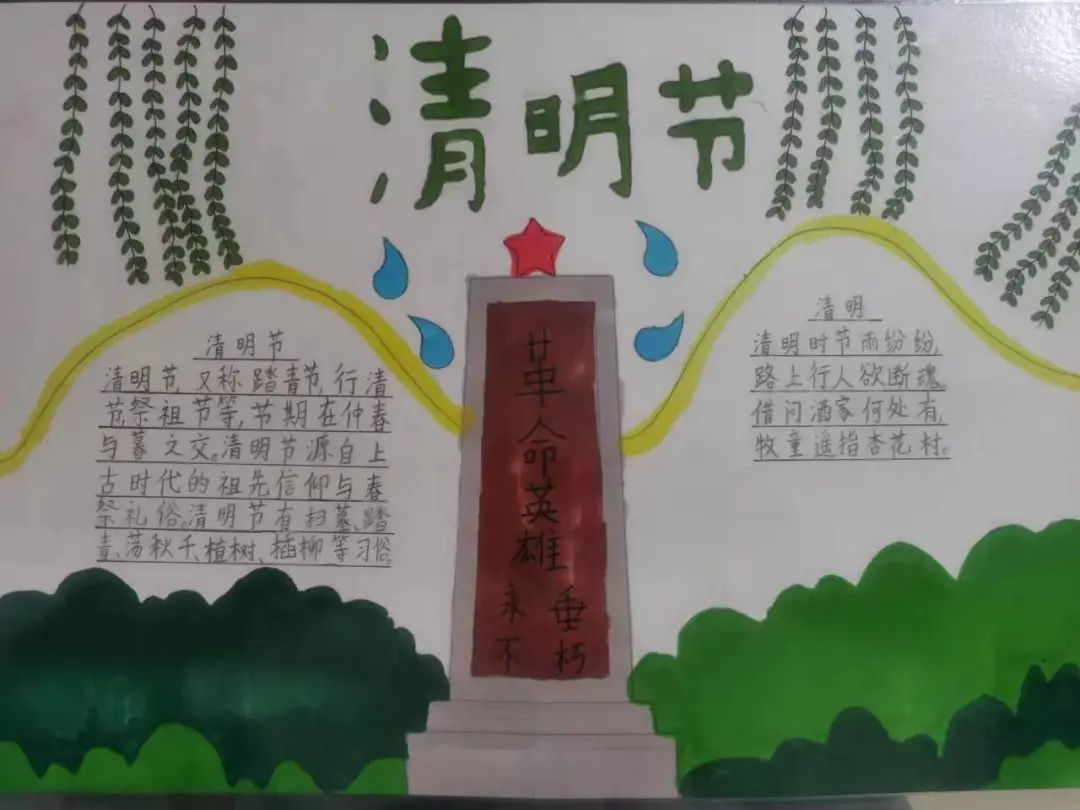 清明节
清明节
清明节,又称踏青节,行清
节,祭祖节等,节期在仲春
与暮之交。清明节源自上
古时代的祖先信仰与春
祭礼俗。清明节有扫墓、踏
青、荡秋千、植树、插柳等习俗。
革命英雄
永垂
不朽
清明
清明时节雨纷纷,
路上行人欲断魂。
借问酒家何处有,
牧童遥指杏花村。